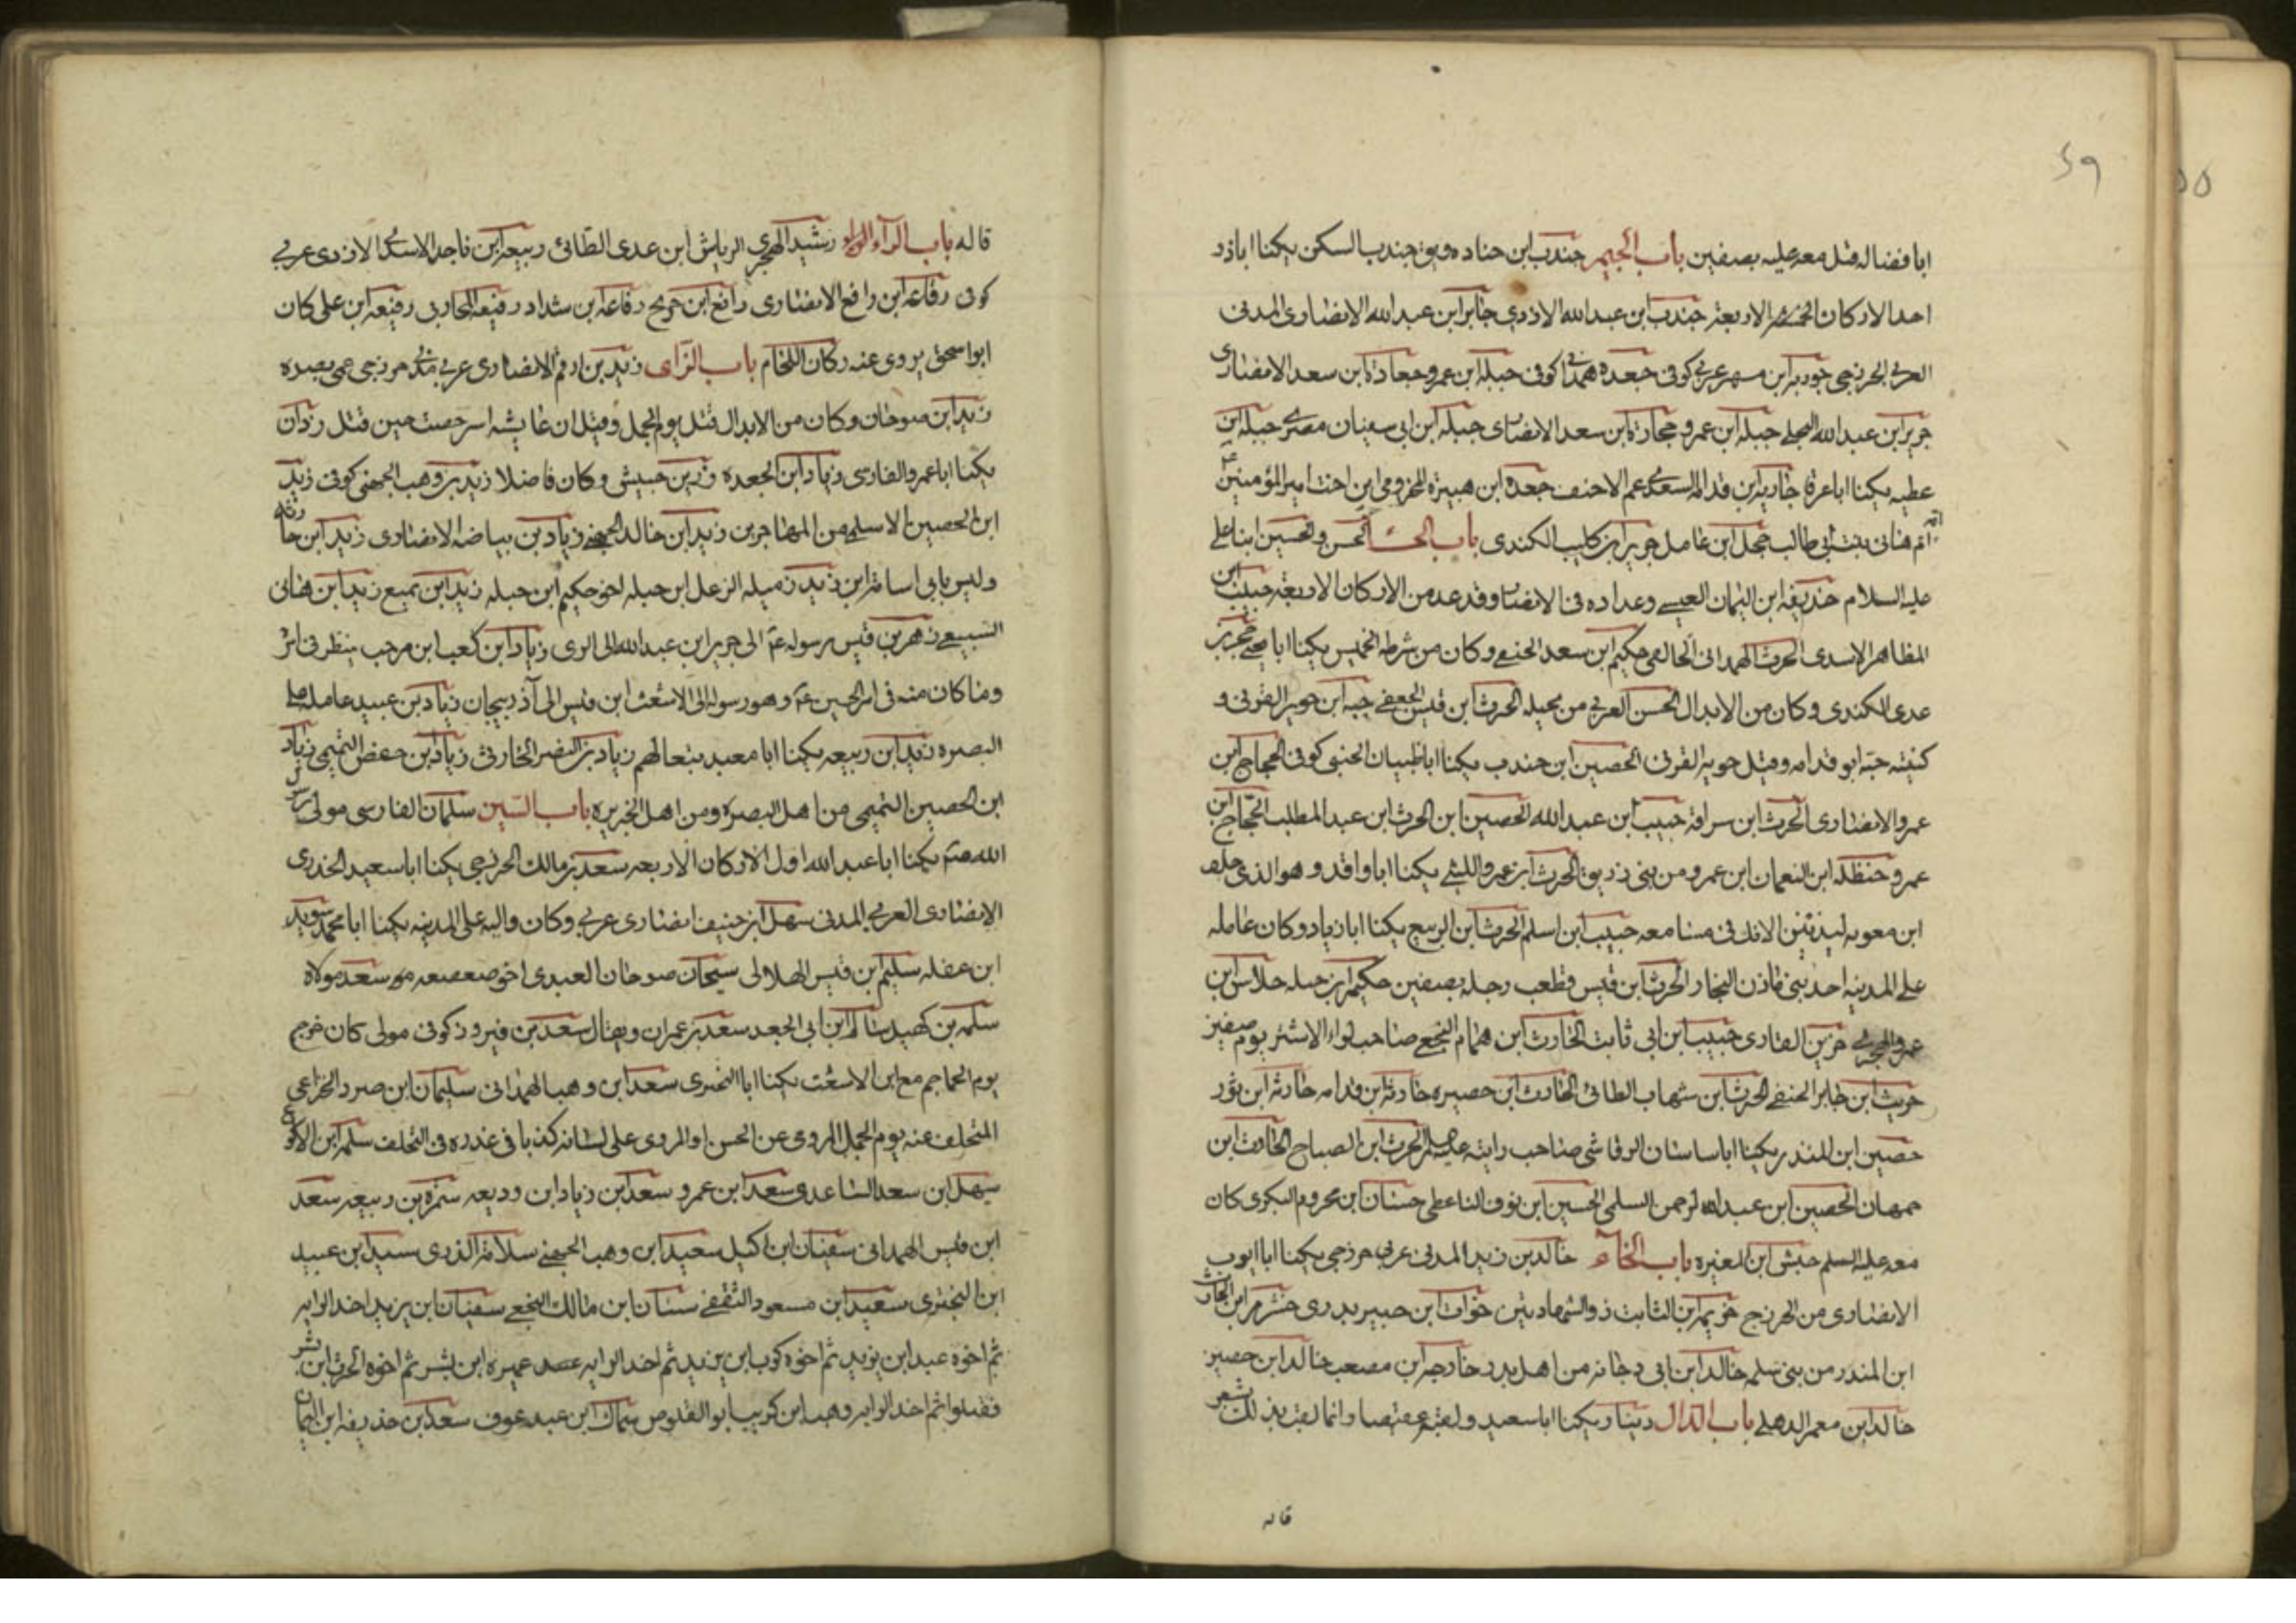 ٥٩
٥٥
ابا فضاله قتل معه عليه بصفين باب الجيم جندب ابن جناده ويق جندب السكن يكنا اباذر
احد الاركان الاربعة جندب ابن عبد الله الازدي جابر ابن عبد الله الانصاری المدنی
العربی الخزرجی جويرية ابن مسهر عربی كوفی جعده همدانی كوفی جبلة ابن عمرو جعادة ابن سعد الانصاری
جرير ابن عبد الله البجلی جبلة ابن عمرو حجارة ابن سعد الانصاری جبلة ابن ابی سفيان مصری جبلة ابن
عطيه يكنا اباعرفا جارية ابن قدامه السعدی عم الاحنف جعدة ابن هبيرة المخزومی ابن اخت امير المؤمنين
امه ام هانی بنت ابی طالب جهل ابن عامل جوير ابن كليب الكندی باب الحاء الحسن والحسين ابنا علی
عليه السلام حذيفة ابن اليمان العبسی وعداده فی الانصار وقد عد من الاركان الاربعة حبيب ابن
المظاهر الاسدی الحرث الهمدانی الحالقی حكيم ابن سعد الحنفی وكان من شرطه الخميس يكنا ابا يحيی حجر بن
عدی الكندی وكان من الابدال الحسن العربی من بجيله الحرث ابن قيس الجعفی حبه ابن جوير القرنی و
كنيته حبه ابو قدامه وقيل جويه القرنی الحصين ابن جندب يكنا اباظبيان الجنبی كوفی الحجاج ابن
عمرو الانصاری الحرث ابن سراقة حبيب ابن عبد الله الحصين ابن الحرث ابن عبد المطلب الحجاج ابن
عمرو حنظله ابن النعمان ابن عمرو من بنی زريق الحرث ابن عمرو الليثی يكنا اباواقد وهو الذی حلف
ابن معويه ليذيبن الانك فی مسامعه حبيب ابن اسلم الحرث ابن الربيع يكنا ابازياد وكان عامله
علی المدينه احد بنی مازن النجار الحرث ابن قيس قطعت رجله بصفين حكيم ابن جبله حلاس ابن
عمرو الهجری حزين القاری حبيب ابن ابی ثابت الحارث ابن همام النخعی صاحب لواء الاشتر يوم صفين
حريث ابن جابر الحنفی الحرث ابن شهاب الطائی الحارث ابن حصيره حارثة ابن قدامه حارثه ابن ثور
حصين ابن المنذر يكنا اباساسان الرقاشی صاحب رايته عليه السلم الحرث ابن الصباح الحارث ابن
جمهان الحصين ابن عبد الرحمن السلمی الحسين ابن نوف الناعطی حسان ابن مخروم البكری كان
معه عليه السلم حبش ابن المغيره باب الخاء خالد بن زيد المدنی عربی خزرجی يكنا ابا ايوب
الانصاری من الخزرج خزيمة ابن الثابت ذو الشهادتين خوات ابن جبير بدری خشرم ابن الحارث
ابن المنذر من بنی سلمه خالد ابن ابی دجانه من اهل بدر خارجه ابن مصعب خالد ابن حصين
خالد ابن معمر الدهلی باب الدال دينار يكنا اباسعيد ولقبه عقيصا وانما لقب بذلك لشعر
قاله
قاله باب الراء رشيد الهجری الرياش ابن عدی الطائی ربيعة ابن ناجد الاسدی الازدی عربی
كوفی رفاعه ابن رافع الانصاری رافع ابن خديج رفاعه ابن شداد رفيعه المحاربی رفيعه ابن علی كان
ابو اسحق يروی عنه ركان اللخام باب الزای زيد بن ارقم الانصاری عربی مدنی خزرجی عمی بصره
زيد ابن صوحان وكان من الابدال قتل يوم الجمل وقيل ان عايشه استرجعت حين قتل زاذان
يكنا اباعمرو الفارسی زياد ابن الجعده زر بن حبيش وكان فاضلا زيد بن وهب الجهنی كوفی زيد
ابن الحصين الاسلمی من المهاجرين زيد ابن خالد الجهنی زياد بن بياضه الانصاری زيد ابن حارثه
وليس بابی اسامة ابن زيد زميله الزعل ابن جبله اخو حكيم ابن جبله زيد ابن تميع زيد ابن هانی
السبيعی زهر بن قيس رسوله ع الی جرير ابن عبد الله الی الری زياد ابن كعب ابن مرحب ينظر فی اثر
وما كان منه فی امر الحسين ع وهو رسوله الی الاشعث ابن قيس الی آذربيجان زياد بن عبيد عامله علی
البصره زيد ابن ربيعه يكنا ابا معبد زياد بن النضر الحارثی زياد ابن حفص التميمی زياد
ابن الحصين التميمی من اهل البصره ومن اهل الجزيره باب السين سلمان الفارسی مولی رسول
الله ص يكنا اباعبد الله اول الاركان الاربعه سعد بن مالك الخزرجی يكنا اباسعيد الخدری
الانصاری العربی المدنی سهل ابن حنيف انصاری عربی وكان واليه علی المدينه يكنا ابا محمد سويد
ابن غفله سليم ابن قيس الهلالی سيحان صوحان العبدی اخو صعصعه سعد مولاه
سلمه بن كهيل سالم ابن ابی الجعد سعد بن عمران ويقال سعد بن فيروز كوفی مولی كان خرج
يوم الجماجم مع ابن الاشعث يكنا ابا البختری سعد ابن وهب الهمدانی سليمان ابن صرد الخزاعی
المتخلف عنه يوم الجمل المروی عن الحسن او المروی علی لسانه كذبا فی عذره فی التخلف سلمه ابن الاكوع
سهل ابن سعد الساعدی سعد ابن عمرو سعد بن زياد ابن وديعه سمرة بن ربيعه سعد
ابن قيس الهمدانی سفيان ابن اكيل سعيد ابن وهب الجهنی سلامة الذری سيد ابن عبيد
ابن البختری سعيد ابن مسعود الثقفی سنان ابن مالك النخعی سفيان ابن يزيد اخد الرايه
ثم اخوه عبد ابن يزيد ثم اخوه كرب ابن يزيد ثم اخد الرايه عميره ابن بشر ثم اخوه الحرث ابن بشر
فقتلوا ثم اخد الرايه وهب ابن كريب ابو القلوص سماك ابن عبد عوف سعد بن حذيفه ابن اليمان